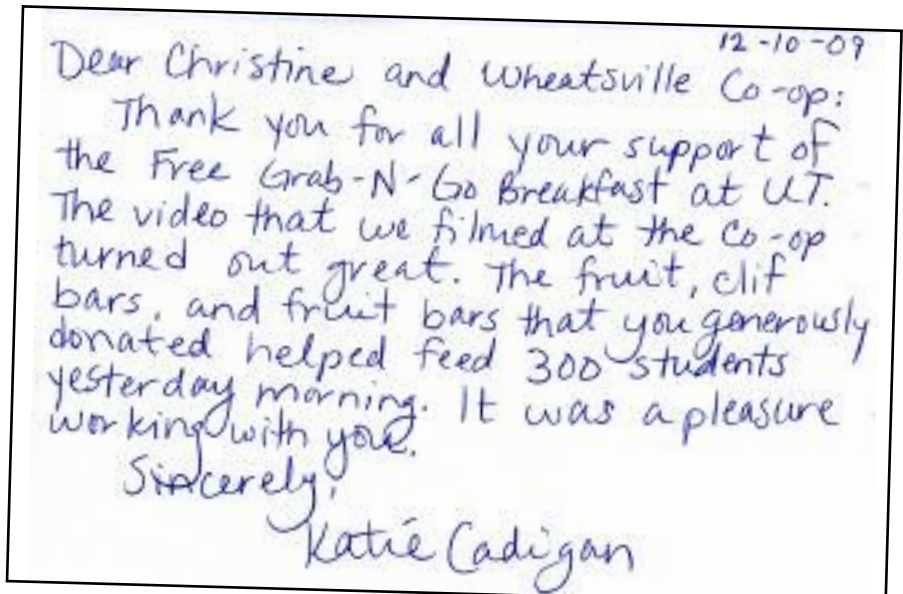 12-10-09
Dear Christine and Wheatsville Co-op:
Thank you for all your support of
the Free Grab-N-Go Breakfast at UT.
The video that we filmed at the Co-op
turned out great. The fruit, clif
bars, and fruit bars that you generously
donated helped feed 300 students
yesterday morning. It was a pleasure
working with you.
Sincerely,
Katie Cadigan